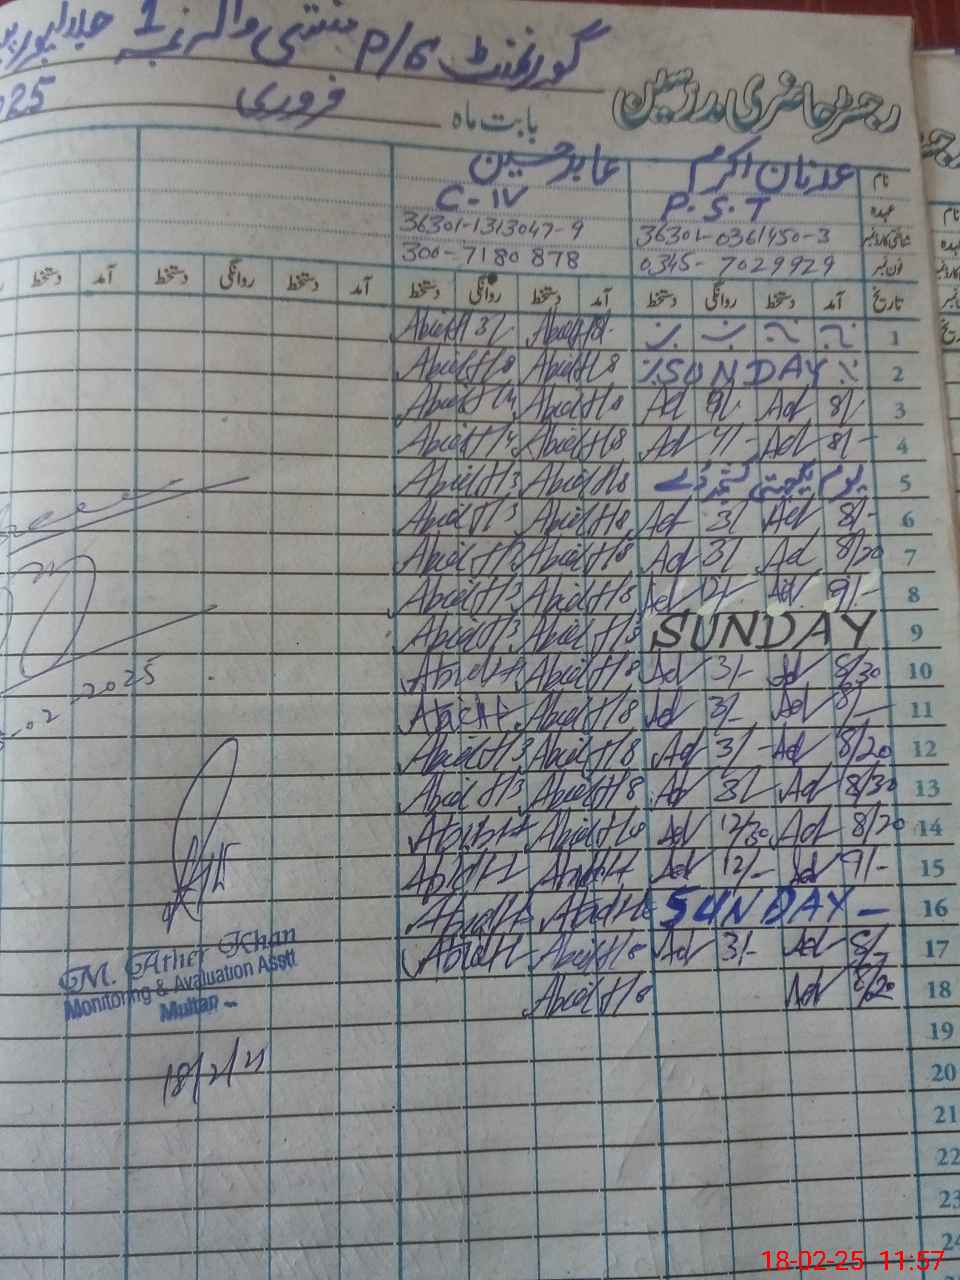 گورنمنٹ P/G
رجسٹر حاضری مدرسین
بابت ماہ فروری 025
نام عدنان اکرم عابد حسین
عہدہ P.S.T C-IV
36301-0361450-3 36301-1313047-9
فون نمبر 0345-7029929 300-7180878
تاریخ آمد دستخط روانگی دستخط آمد دستخط روانگی دستخط آمد دستخط روانگی دستخط آمد دستخط
1 Abid H 8/- Abid H 3/-
2 SUNDAY Abid H 8 Abid H 8
3 8/- Ad 9/- Ad Abid H 8 Abid H
4 8/- Ad Ad Abid H 8 Abid H
5 یوم یکجہتی کشمیر ڈے Abid H 8 Abid H 3
6 8/- Ad 3/- Ad Abid H 8 Abid H 3
7 8/20 Ad 3/- Ad Abid H 8 Abid H
8 9/- Ad Ad Abid H 8 Abid H 3
9 SUNDAY Abid H 8 Abid H 3
10 8/30 Ad 3/- Ad Abid H 8 Abid H
11 8/- Ad 3/- Ad Abid H 8 Abid H
12 8/20 Ad 3/- Ad Abid H 8 Abid H 3
13 8/30 Ad 3/- Ad Abid H 8 Abid H 3
14 8/20 Ad 12/30 Ad Abid H 8 Abid H
15 9/- Ad 12/- Ad Abid H Abid H
16 SUNDAY - Abid H Abid H
17 8/- Ad 3/- Ad Abid H 8 Abid H
18 8/20 Ad Abid H 8
19
20
21
22
23
24
.02.2025
M. Ather Khan
Monitoring & Avaluation Asstt
Multan
18/2/25
18-02-25 11:57